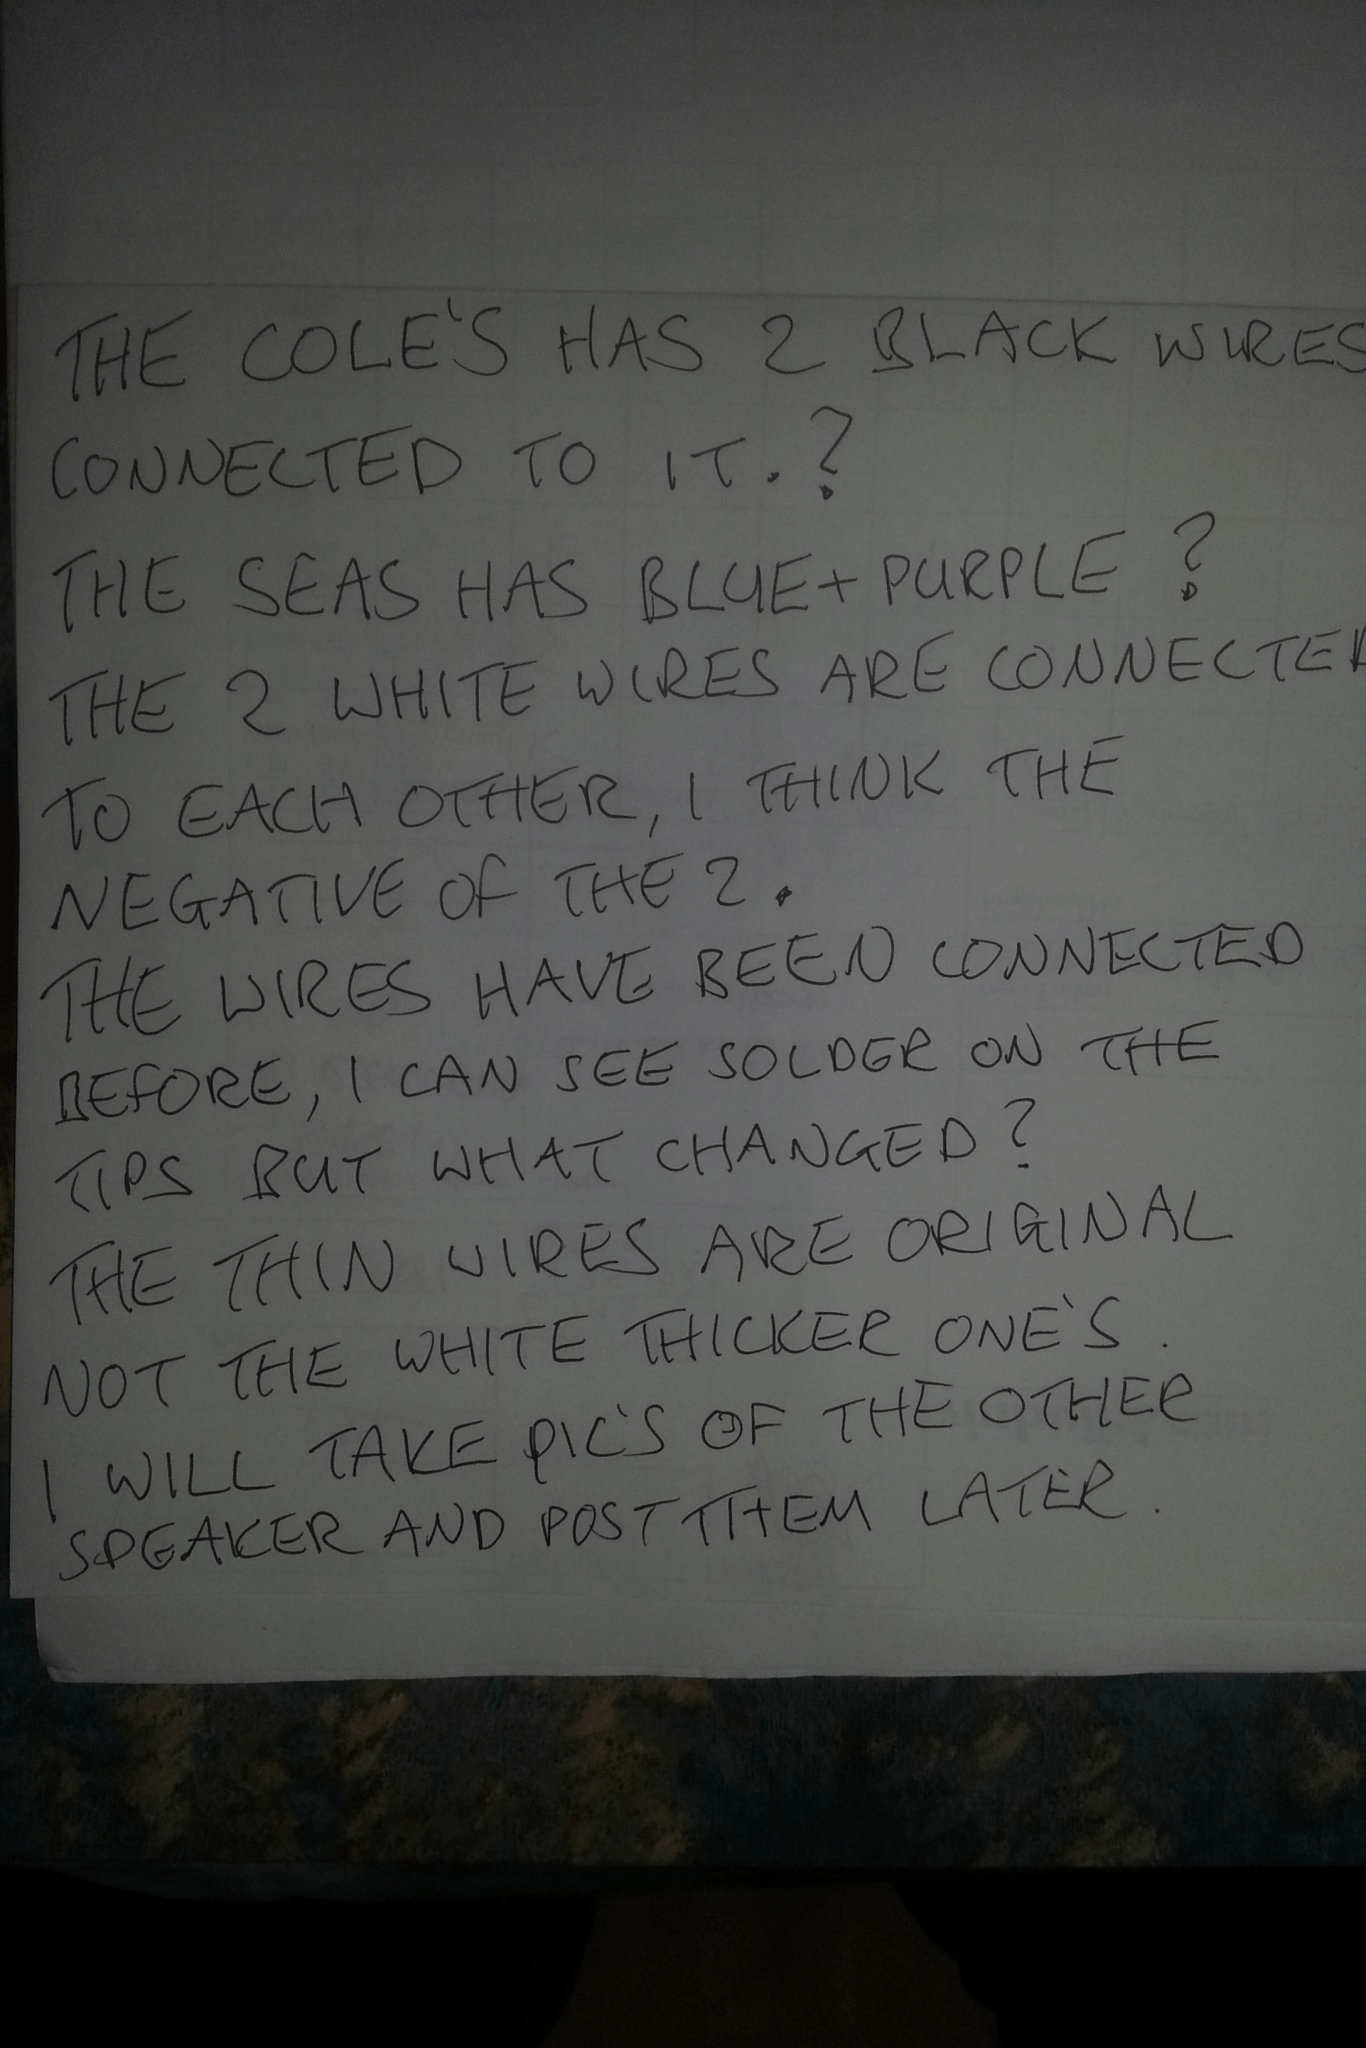 THE COLE'S HAS 2 BLACK WIRES
CONNECTED TO IT.?
THE SEAS HAS BLUE+PURPLE?
THE 2 WHITE WIRES ARE CONNECTED
TO EACH OTHER, I THINK THE
NEGATIVE OF THE 2.
THE WIRES HAVE BEEN CONNECTED
BEFORE, I CAN SEE SOLDER ON THE
TIPS BUT WHAT CHANGED?
THE THIN WIRES ARE ORIGINAL
NOT THE WHITE THICKER ONE'S.
I WILL TAKE PIC'S OF THE OTHER
SPEAKER AND POST THEM LATER.